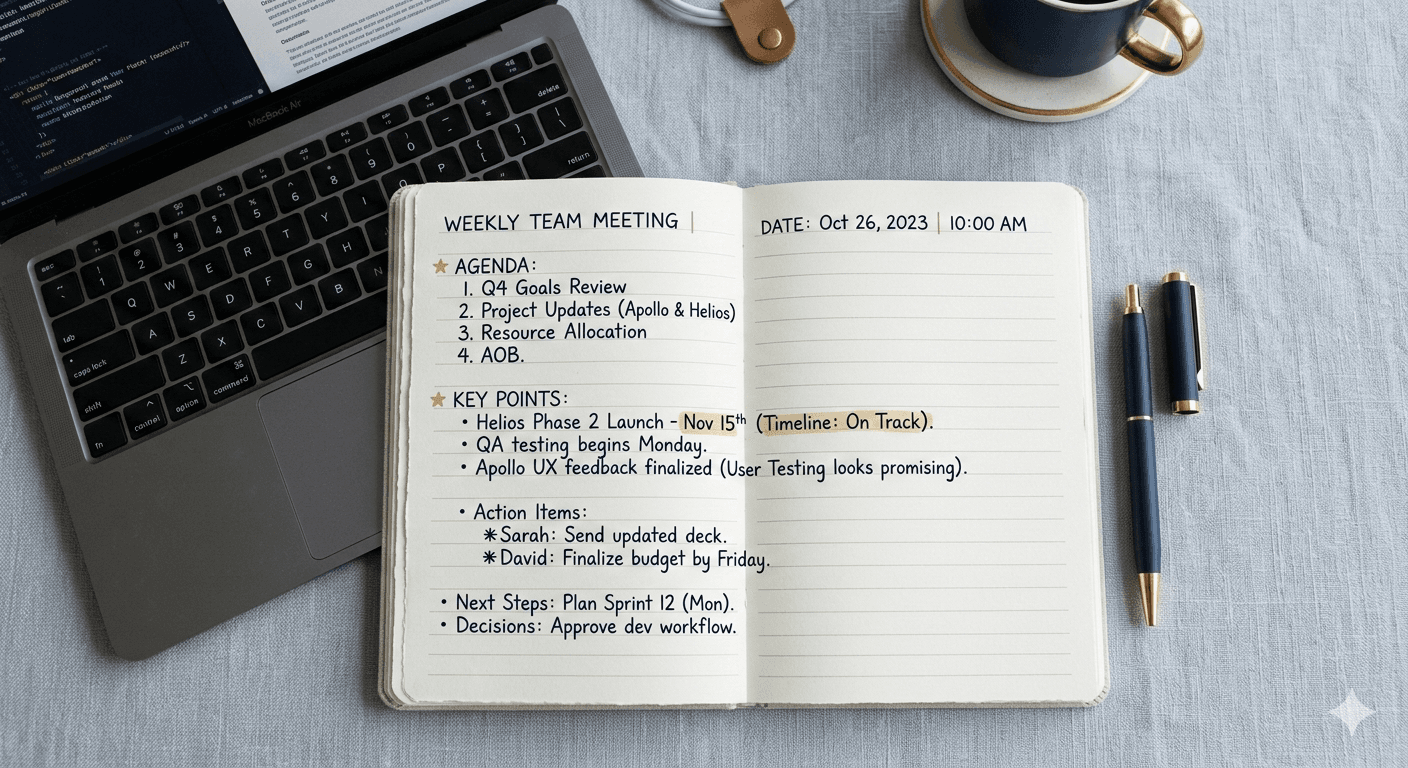 WEEKLY TEAM MEETING | DATE: Oct 26, 2023 | 10:00 AM
★ AGENDA:
1. Q4 Goals Review
2. Project Updates (Apollo & Helios)
3. Resource Allocation
4. AOB.
★ KEY POINTS:
• Helios Phase 2 Launch - Nov 15th (Timeline: On Track).
• QA testing begins Monday.
• Apollo UX feedback finalized (User Testing looks promising).
• Action Items:
* Sarah: Send updated deck.
* David: Finalize budget by Friday.
• Next Steps: Plan Sprint 12 (Mon).
• Decisions: Approve dev workflow.
MacBook Air
delete
return
tab
caps lock
shift
fn
control
option
command